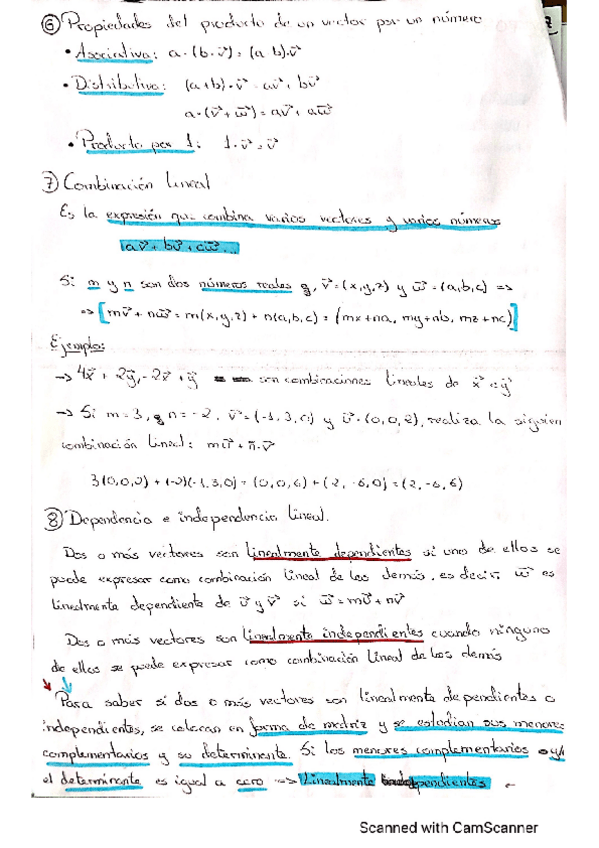 ⑥ Propiedades del producto de un vector por un número
• Asociativa: a·(b·v⃗) = (a·b)·v⃗
• Distributiva: (a+b)·v⃗ = av⃗ + bv⃗
a·(v⃗+w⃗) = av⃗ + aw⃗
• Producto por 1: 1·v⃗ = v⃗
⑦ Combinación lineal
Es la expresión que combina varios vectores y varios números
av⃗ + bu⃗ + cw⃗...
Si m y n son dos números reales y, v⃗=(x,y,z) y w⃗=(a,b,c) =>
=> [mv⃗ + nw⃗ = m(x,y,z) + n(a,b,c) = (mx+na, my+nb, mz+nc)]
Ejemplo:
→ 4x⃗ + 2y⃗, -2x⃗ + y⃗ son combinaciones lineales de x⃗ e y⃗
→ Si m=3, y n=-2, v⃗=(-1,3,0) y u⃗=(0,0,2), realiza la siguien
combinación lineal: mu⃗ + n·v⃗
3(0,0,2) + (-2)(-1,3,0) = (0,0,6) + (2,-6,0) = (2,-6,6)
⑧ Dependencia e independencia lineal.
Dos o más vectores son linealmente dependientes si uno de ellos se
puede expresar como combinación lineal de los demás, es decir, w⃗ es
linealmente dependiente de u⃗ y v⃗ si w⃗=mu⃗+nv⃗
Dos o más vectores son linealmente independientes cuando ninguno
de ellos se puede expresar como combinación lineal de los demás
Para saber si dos o más vectores son linealmente dependientes o
independientes, se colocan en forma de matriz y se estudian sus menores
complementarios y su determinante. Si los menores complementarios o y/
el determinante es igual a cero => Linealmente dependientes
Scanned with CamScanner